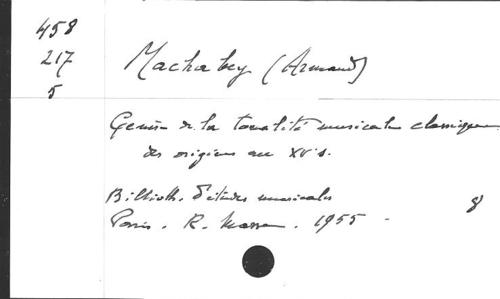 458
217
5
Machabey (Armand)
Genèse de la tonalité musicale classique
des origines au XVe s.
Biblioth. d'études musicales
Paris. R. Masse. 1955 - 8